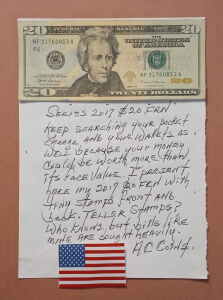 20
20
NF 31760853 A
F6
NF 31760853 A
20
TWENTY DOLLARS
20
SERIES 2017 $20 FRN
KEEP SEARCHING YOUR POCKET
CHANGE AND YOUR WALLETS AS
WELL BECAUSE YOUR MONEY
COULD BE WORTH MORE THAN
ITS FACE VALUE. I PRESENT
HERE MY 2017 $20 FRN WITH
TINY STAMPS FRONT AND
BACK. TELLER STAMPS?
WHO KNOWS BUT BILLS LIKE
MINE ARE SOUGHT HEAVILY.
A.C. COINS